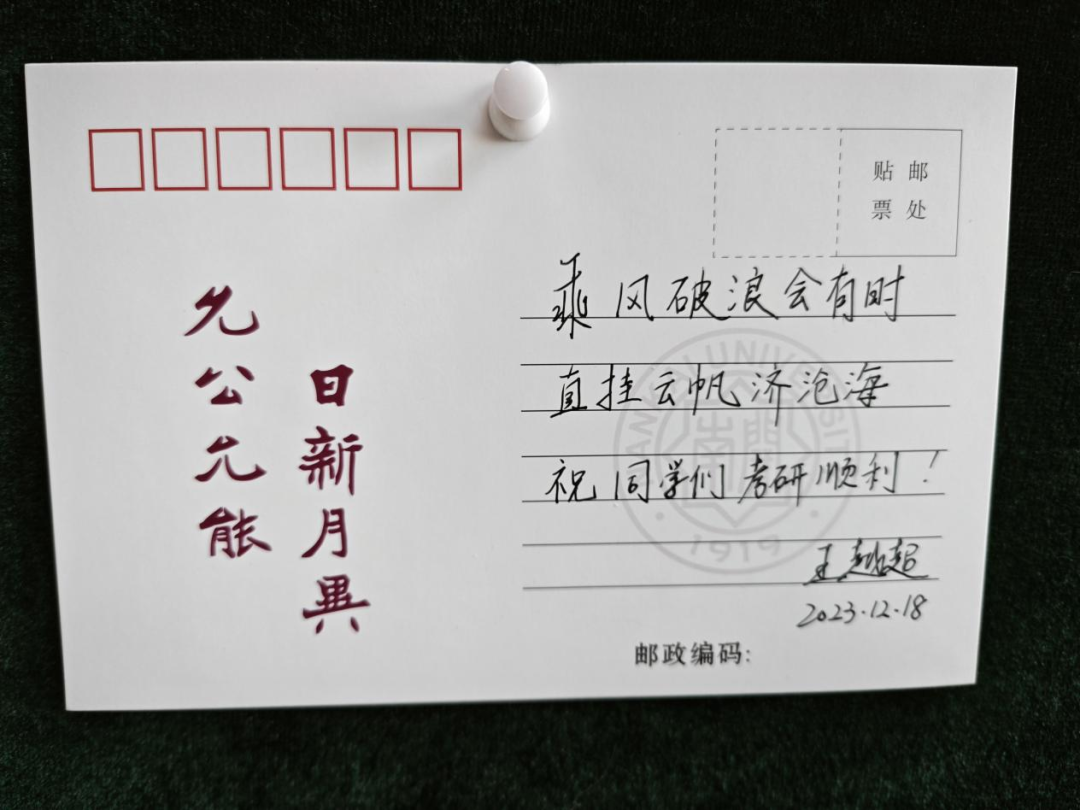 贴邮
票处
允公允能
日新月異
乘风破浪会有时
直挂云帆济沧海
祝同学们考研顺利!
NANKAI UNIVERSITY
南開
1919
2023.12.18
邮政编码: